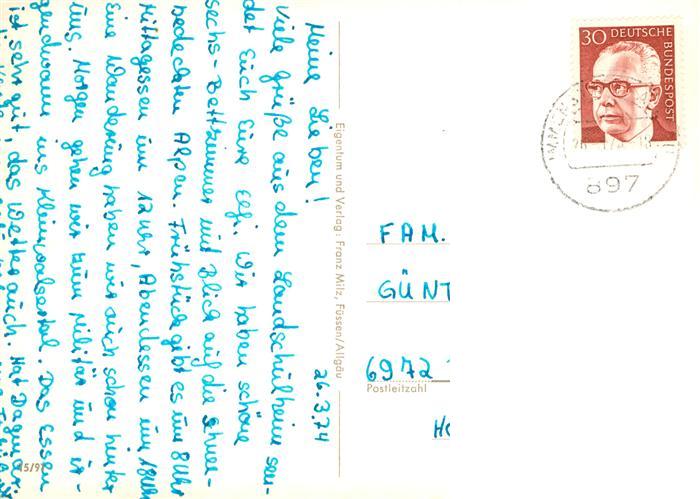 26.3.74
Meine Lieben!
Viele Grüße aus dem Landschulheim sen-
det Euch Eure Elfi. Wir haben schöne
sechs-Bettzimmer mit Blick auf die schnee-
bedeckten Alpen. Frühstück gibt es um 8 Uhr
Mittagessen um 12 Uhr, Abendessen um 18 Uhr
Eine Wanderung haben wir auch schon hinter
uns. Morgen gehen wir zum Militär und ir-
gendwann ins Kleinwalsertal. Das Essen
ist sehr gut, das Wetter auch. Hat Dagmar
15/97
Eigentum und Verlag: Franz Milz, Füssen/Allgäu
30 DEUTSCHE
BUNDESPOST
897
FAM.
GÜNT
6972
Postleitzahl